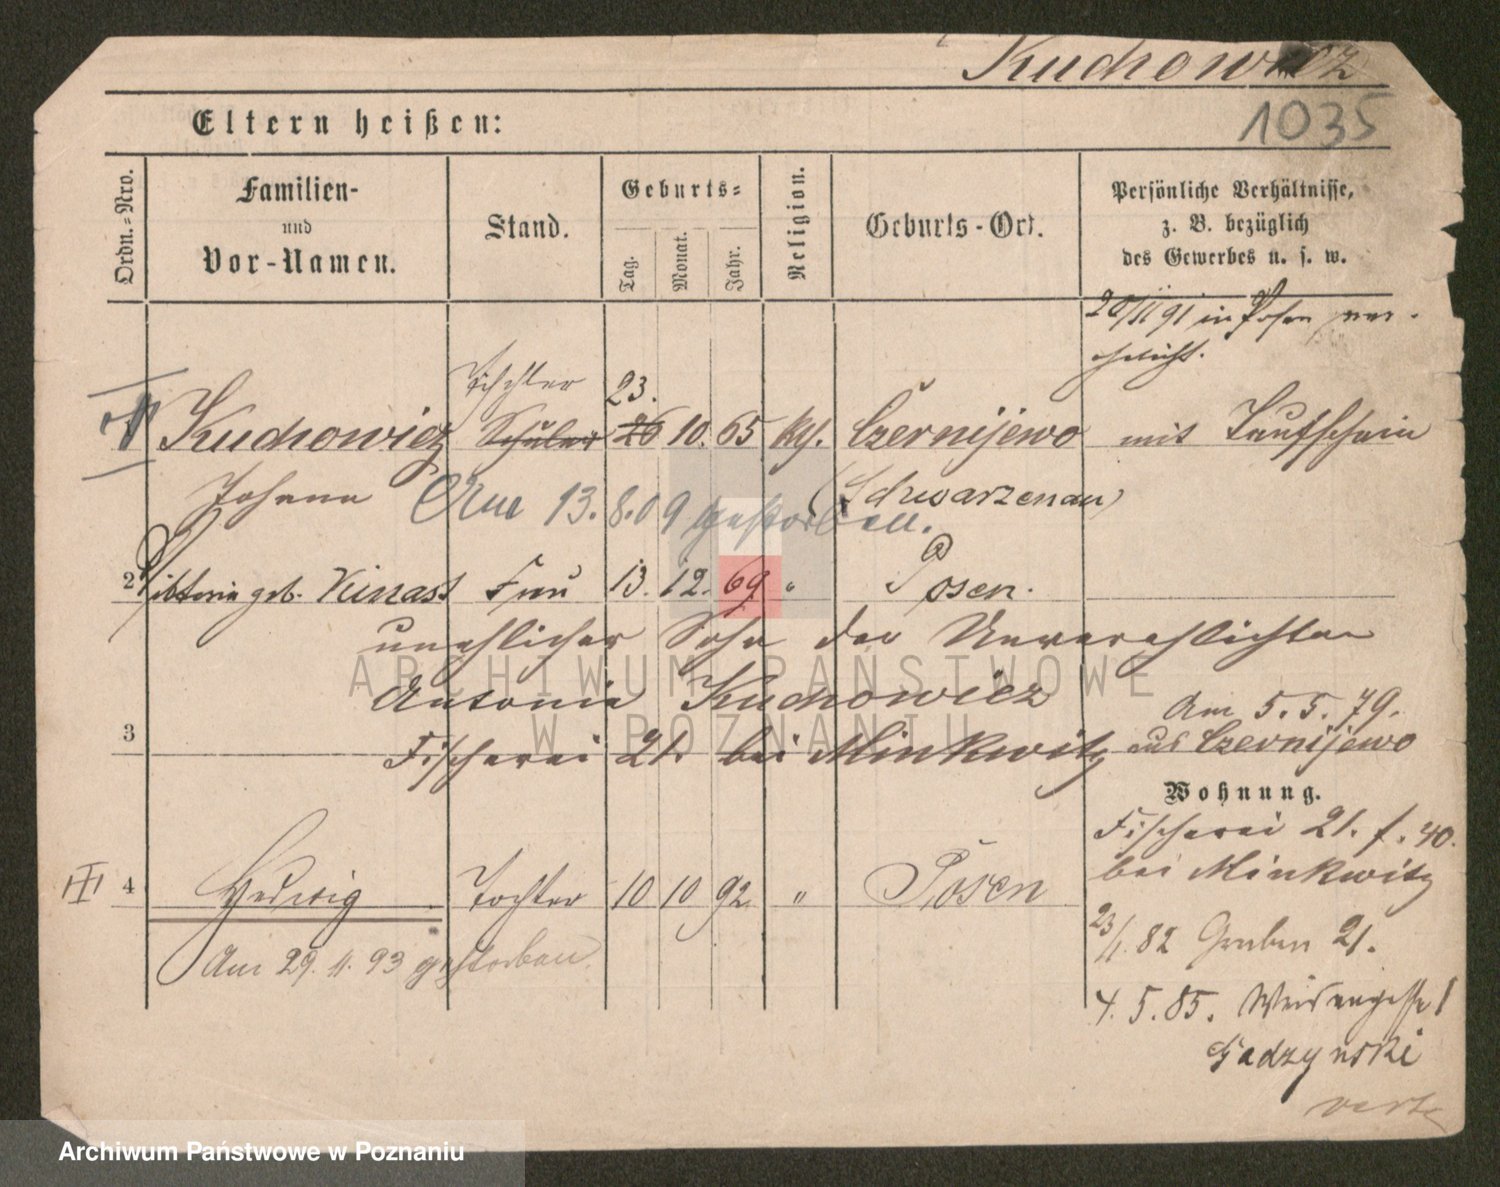 Kuchowicz
1035
Eltern heißen:
Ordn.-Nro.
Familien-
und
Vor-Namen.
Stand.
Geburts-
Tag.
Monat.
Jahr.
Religion.
Geburts-Ort.
Persönliche Verhältnisse,
z. B. bezüglich
des Gewerbes u. s. w.
20/11 91 in Posen ver-
ehelicht.
23.
1 Kuchowicz Schüler 26 10. 65 kth. Czernijewo mit Taufschein
Johann (Schwarzenau)
Am 13. 8. 09 gestorben.
2 Viktoria geb. Kinast Frau 13. 12. 69 " Posen.
unehlicher Sohn der Unverehlichten
Antonie Kuchowicz
Am 5. 5. 79.
3 Fischerei 21. bei Minkwitz aus Czernijewo
Wohnung.
Fischerei 21. f. 40.
bei Minkwitz
III 4 Hedwig Tochter 10 10 92. " Posen
Am 29. 11. 93 gestorben.
23/1. 82 Graben 21.
4. 5. 85.
Gadzynski
verte
ARCHIWUM PAŃSTWOWE
W POZNANIU
Archiwum Państwowe w Poznaniu